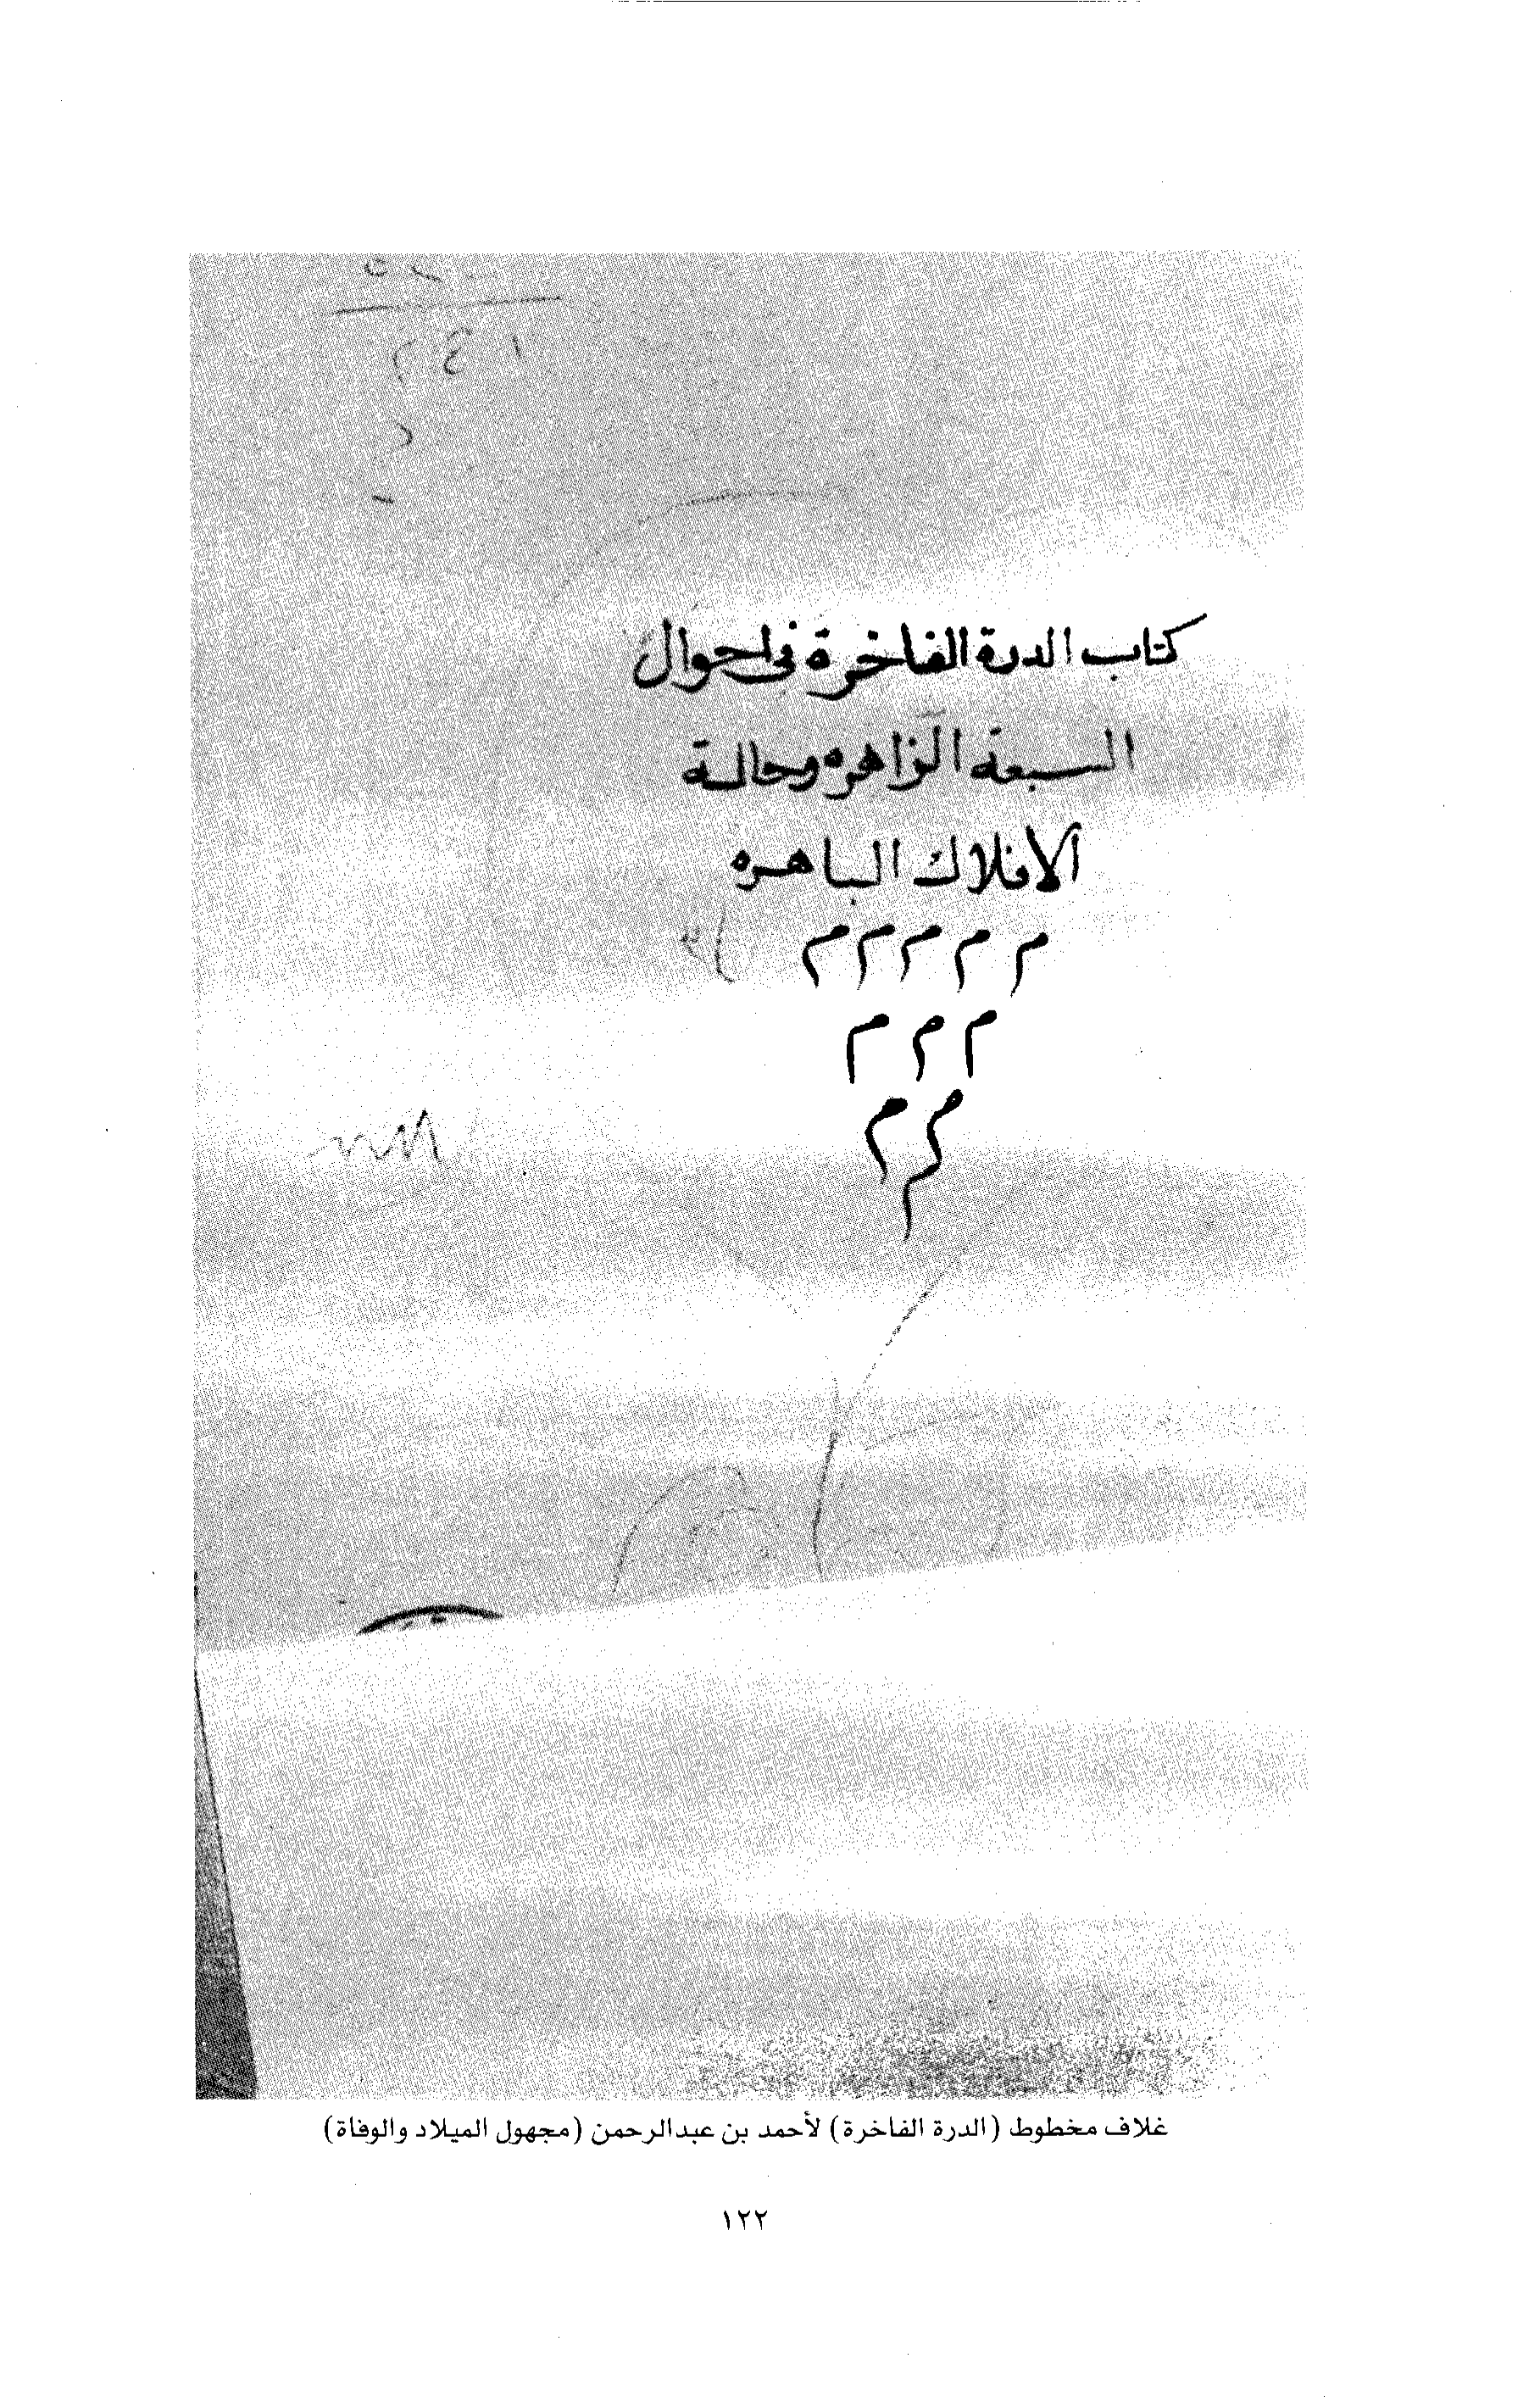 كتاب الدرة الفاخرة فى احوال
السبعة الزاهره وحالة
الافلاك الباهره
م م م م م
م م م
م م م
غلاف مخطوط (الدرة الفاخرة) لأحمد بن عبدالرحمن (مجهول الميلاد والوفاة)
١٢٢